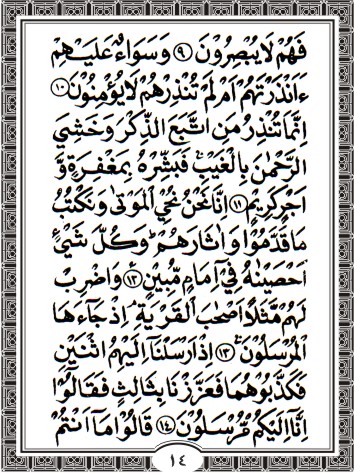 فَهُمْ لَا يُبْصِرُوْنَ ۹ وَسَوَآءٌ عَلَيْهِمْ
ءَاَنْذَرْتَهُمْ اَمْ لَمْ تُنْذِرْهُمْ لَا يُؤْمِنُوْنَ ۱۰
اِنَّمَا تُنْذِرُ مَنِ اتَّبَعَ الذِّكْرَ وَخَشِيَ
الرَّحْمٰنَ بِالْغَيْبِ ۚ فَبَشِّرْهُ بِمَغْفِرَةٍ وَّ
اَجْرٍ كَرِيْمٍ ۱۱ اِنَّا نَحْنُ نُحْيِ الْمَوْتٰى وَنَكْتُبُ
مَا قَدَّمُوْا وَاٰثَارَهُمْ ۚ وَكُلَّ شَيْءٍ
اَحْصَيْنٰهُ فِيْٓ اِمَامٍ مُّبِيْنٍ ۱۲ وَاضْرِبْ
لَهُمْ مَّثَلًا اَصْحٰبَ الْقَرْيَةِ ۘ اِذْ جَآءَهَا
الْمُرْسَلُوْنَ ۱۳ اِذْ اَرْسَلْنَآ اِلَيْهِمُ اثْنَيْنِ
فَكَذَّبُوْهُمَا فَعَزَّزْنَا بِثَالِثٍ فَقَالُوْٓا
اِنَّآ اِلَيْكُمْ مُّرْسَلُوْنَ ۱۴ قَالُوْا مَآ اَنْتُمْ
١٤